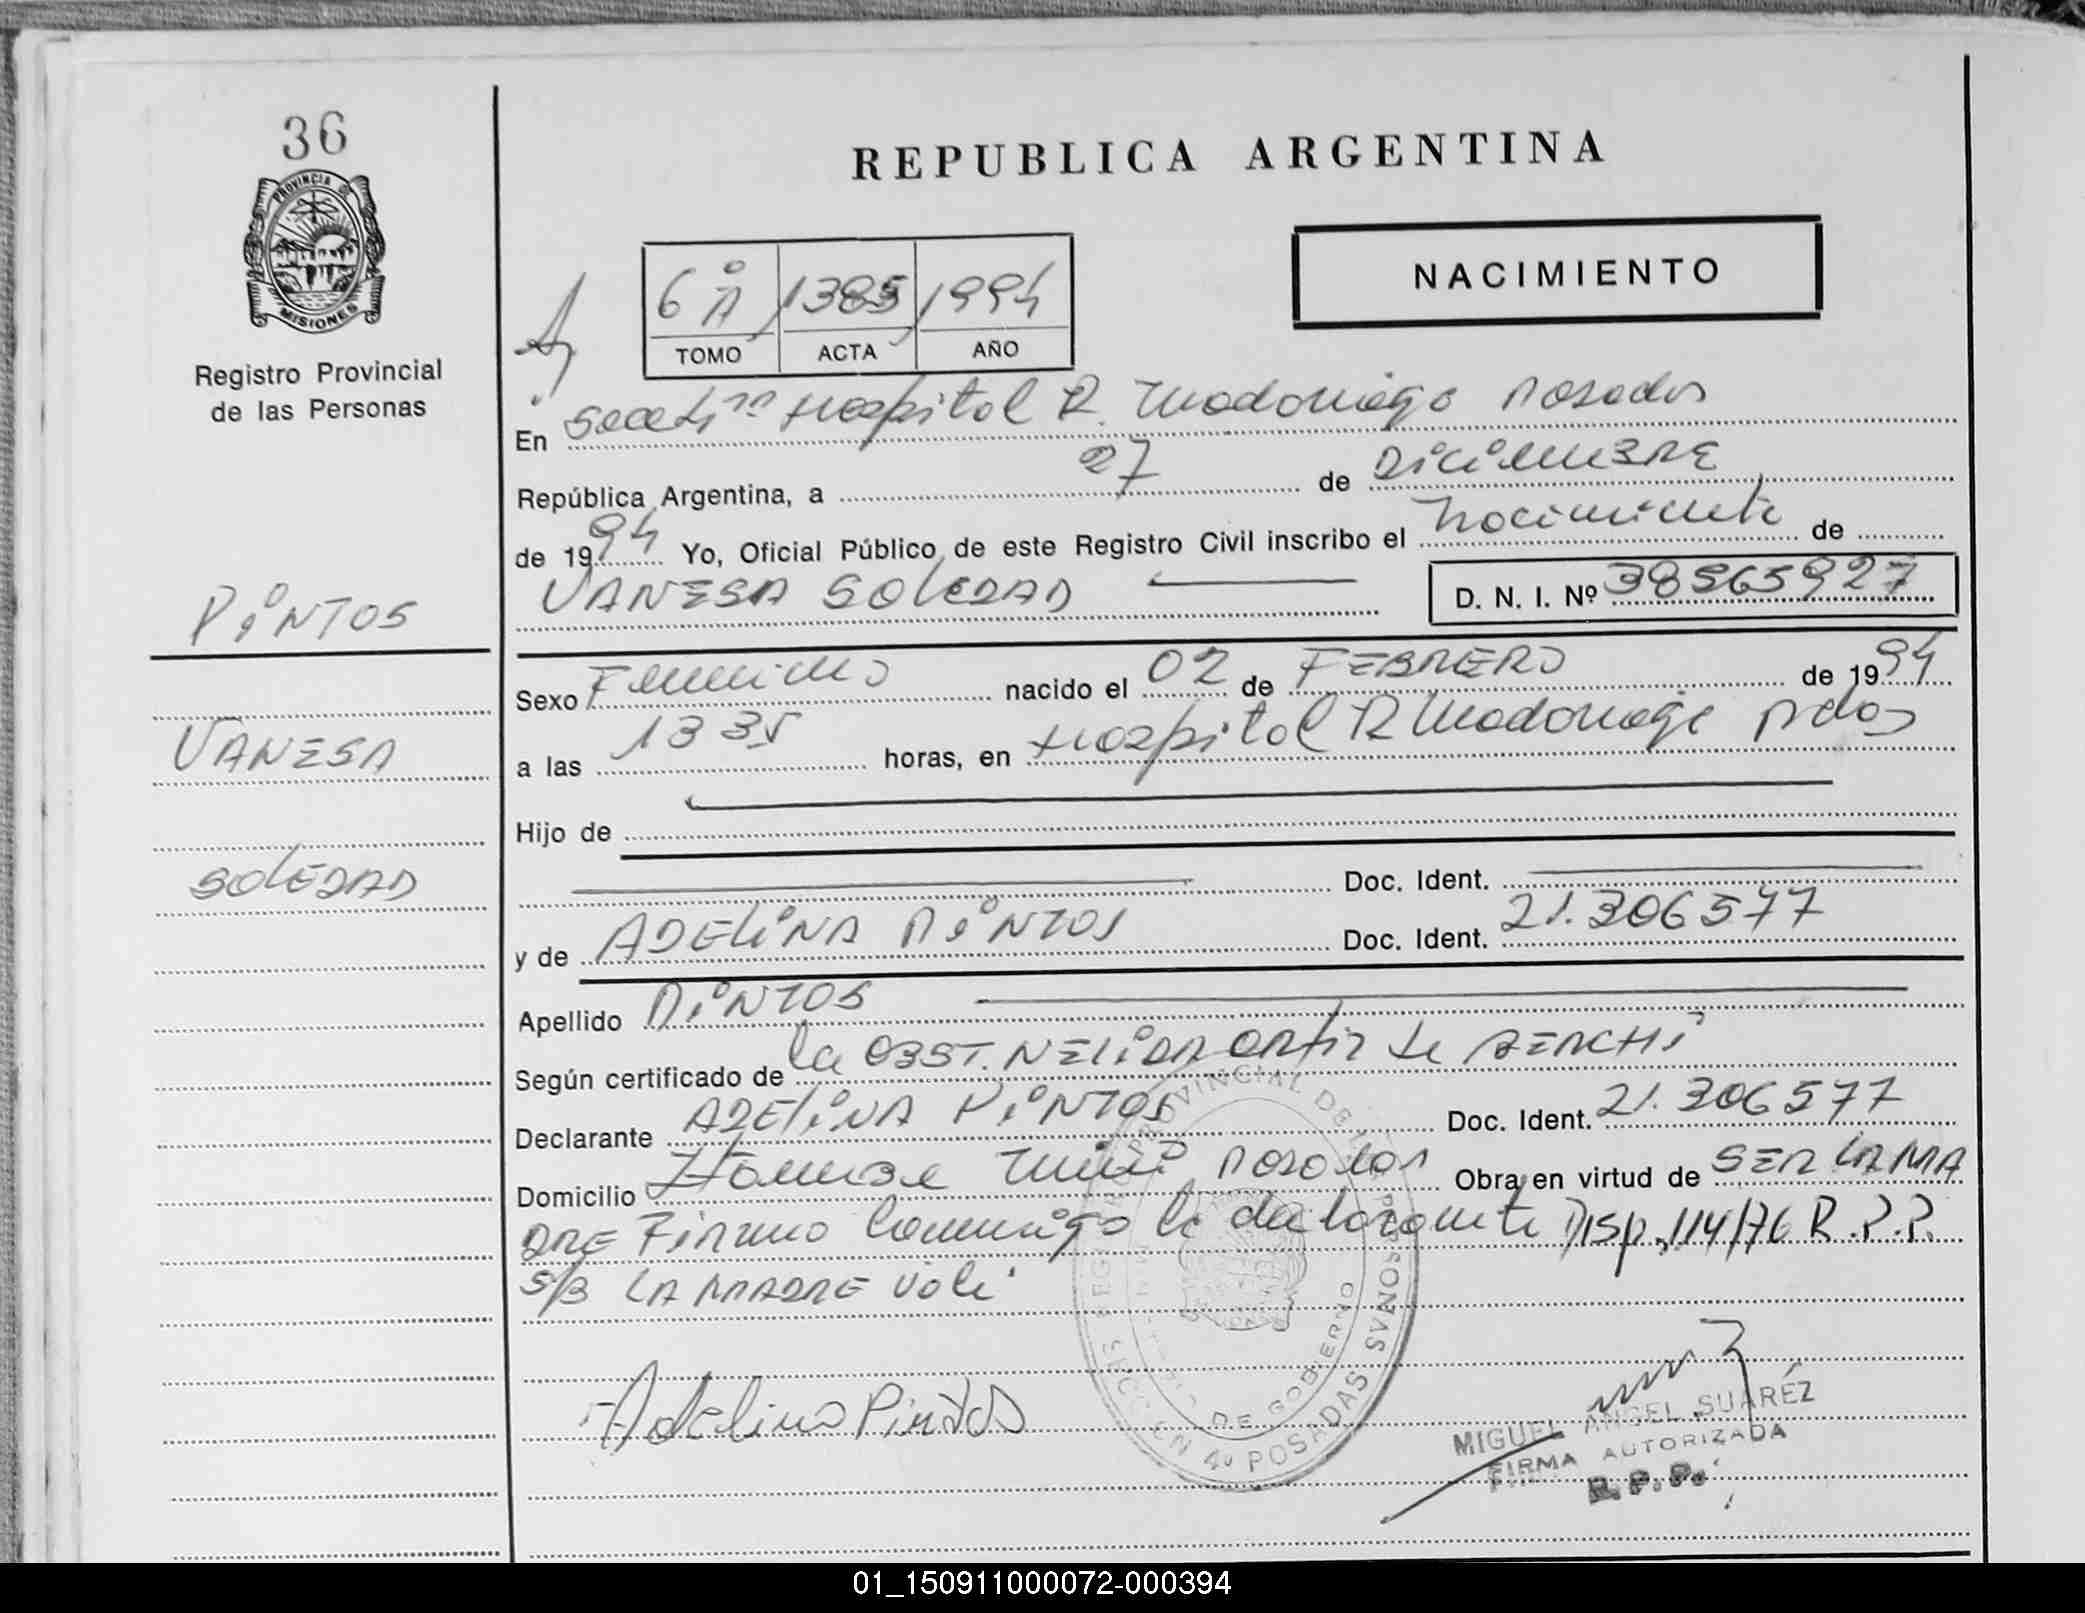 36
PROVINCIA DE
MISIONES
Registro Provincial
de las Personas
REPUBLICA ARGENTINA
6º A 1385 1994
TOMO ACTA AÑO
NACIMIENTO
En Hospital R. Madariaga Posadas
República Argentina, a 27 de DICIEMBRE
de 1994 Yo, Oficial Público de este Registro Civil inscribo el nacimiento de
VANESA SOLEDAD D. N. I. Nº 38565927
PINTOS
VANESA
SOLEDAD
Sexo Femenino nacido el 02 de FEBRERO de 1994
a las 13 35 horas, en Hospital R Madariaga Pdas
Hijo de
Doc. Ident.
y de ADELINA PINTOS Doc. Ident. 21.306577
Apellido PINTOS
Según certificado de la OBST. NELIDA ORTIZ de
Declarante ADELINA PINTOS Doc. Ident. 21.306577
Domicilio Posadas Obra en virtud de SER LA MA
DRE Firmo conmigo la declarante Disp. 114/76 R.P.P.
S/B LA MADRE Vale
Adelina Pintos
PROVINCIAL DE LAS PERSONAS
DE GOBIERNO
POSADAS
MIGUEL ANGEL SUAREZ
FIRMA AUTORIZADA
R.P.P.
01_150911000072-000394